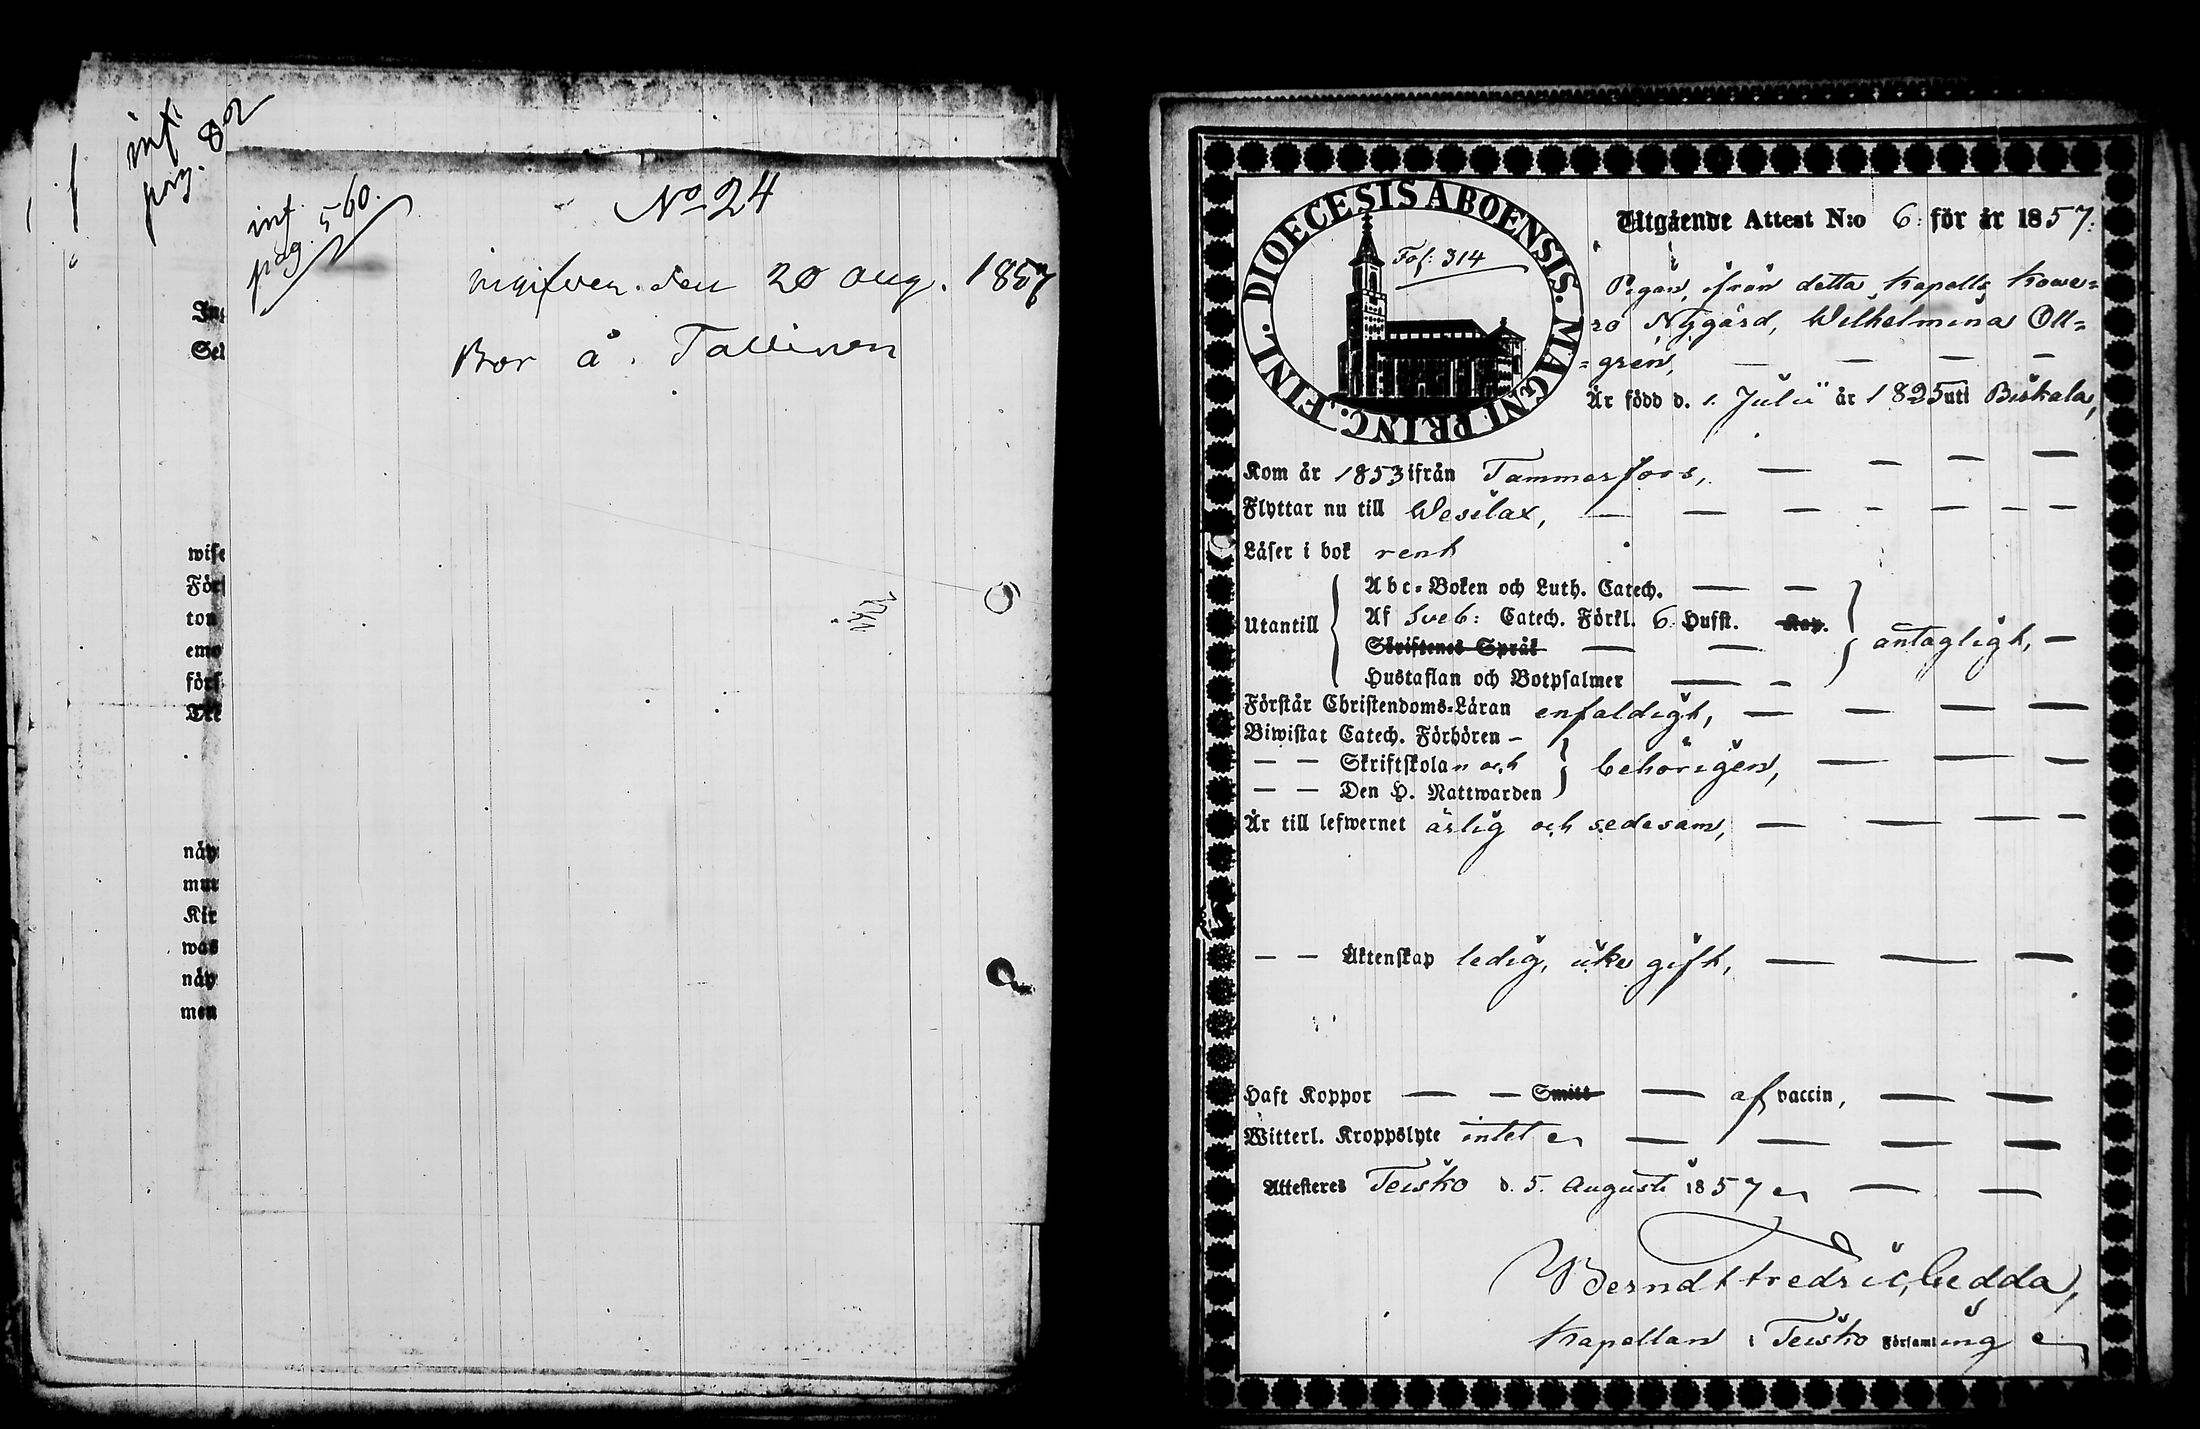 inf.
pag. 82
inf.
pag. 560.
No 24
ingifven. den 20 aug. 1857
Bor å. Tallinen
In
Sel
wise
För
ton
emo
förs
Til
näp
mur
Kir
was
näp
men
DIOECESIS ABOENSIS. MAGNI PRINC. FINL.
Fol: 314
Utgående Attest N:o 6: för år 1857:
Pigan, ifrån detta kapells Kowe=
ro Nygård, Wilhelmina Oll=
=gren,
Är född d. 1. Julii år 1825 uti Birkala,
Kom år 1853 ifrån Tammerfors,
Flyttar nu till Wesilax,
Läser i bok rent
Utantill
Abc-Boken och Luth. Catech.
Af Sveb: Catech. Förkl. 6. Hufst. Kap.
Skriftenes Språk
Hustaflan och Botpsalmer
antagligt,
Förstår Christendoms-Läran enfaldigt,
Biwistat Catech. Förhören
Skriftskolan och
Den H. Nattwarden
behörigen,
Är till lefwernet ärlig och sedesam,
Äktenskap ledig, icke gift,
Haft Koppor Smitt af vaccin,
Witterl. Kroppslyte intet
Attesteres Teisko d. 5. Augusti 1857
Berndt Fredric Gedda,
Kapellan i Teisko Församling